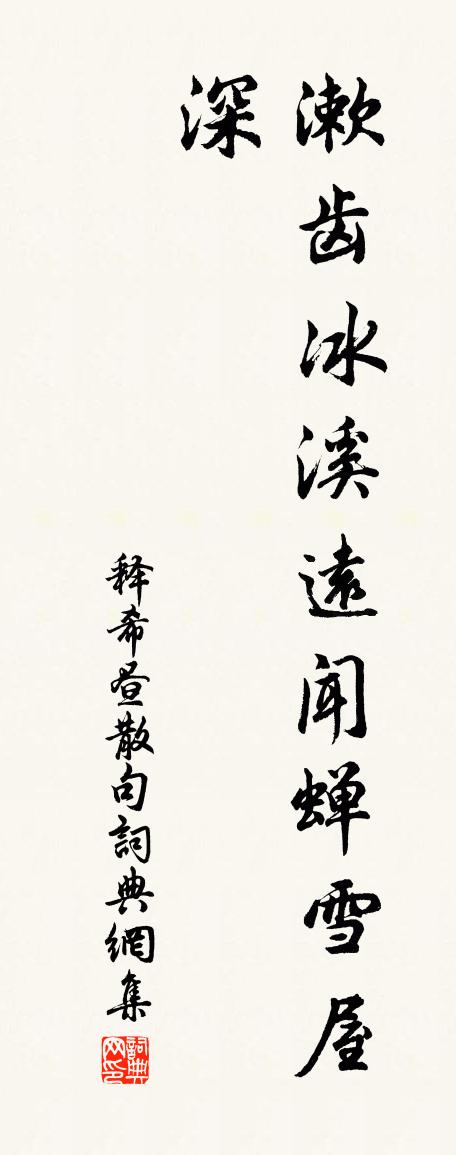 漱齿冰溪遠闻蝉雪屋
深
释希昼散句詞典網集
詞典网印